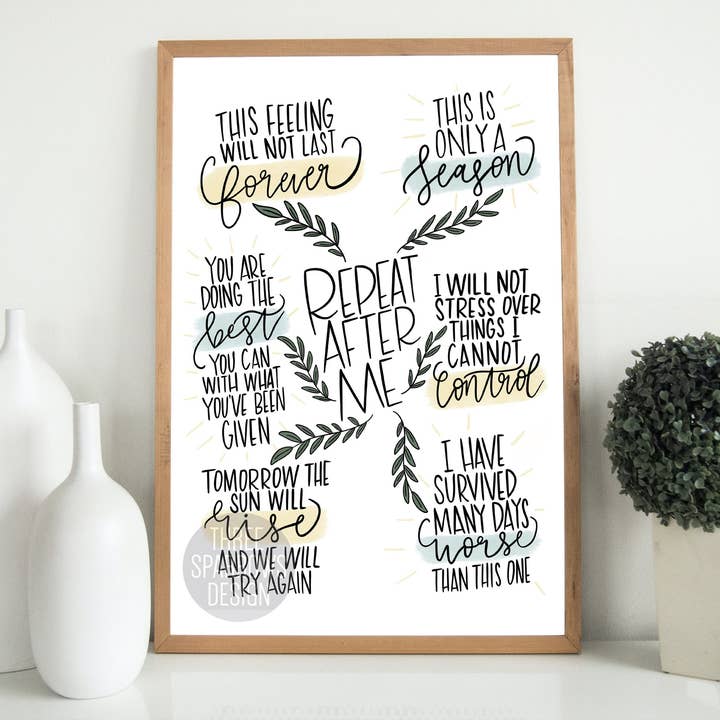 THIS FEELING
WILL NOT LAST
forever
THIS IS
ONLY A
season
REPEAT
AFTER
ME
YOU ARE
DOING THE
best
YOU CAN
WITH WHAT
YOU'VE BEEN
GIVEN
I WILL NOT
STRESS OVER
THINGS I
CANNOT
control
TOMORROW THE
SUN WILL
rise
AND WE WILL
TRY AGAIN
I HAVE
SURVIVED
MANY DAYS
worse
THAN THIS ONE
THREE
SPARROWS
DESIGN